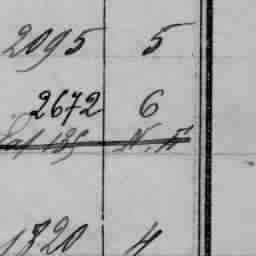 2095 5
2672 6
1320 4